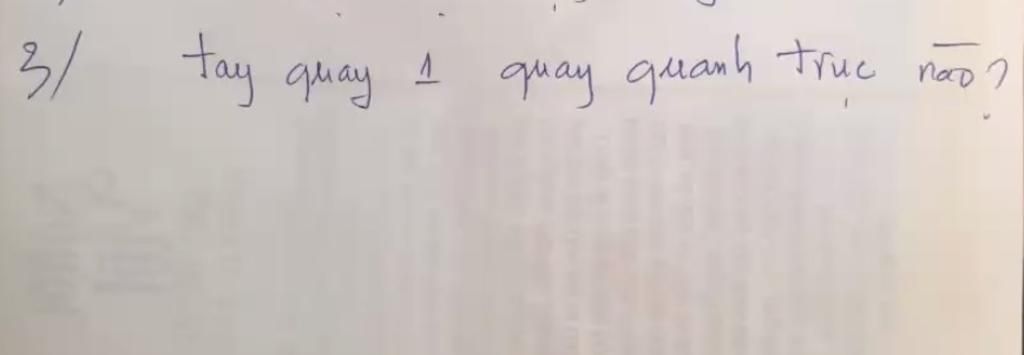 3/ tay quay 1 quay quanh trục nào?